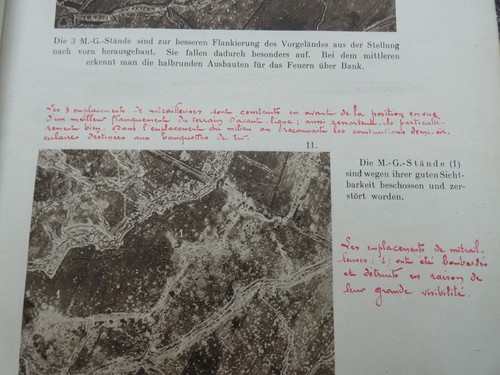 Die 3 M.-G.-Stände sind zur besseren Flankierung des Vorgeländes aus der Stellung
nach vorn herausgebaut. Sie fallen dadurch besonders auf. Bei dem mittleren
erkennt man die halbrunden Ausbauten für das Feuern über Bank.
Les 3 emplacements de mitrailleuses sont construits en avant de la position en vue
d'un meilleur flanquement du terrain d'avant-ligne; aussi ressortent-ils particuliè-
rement bien. Dans l'emplacement du milieu on reconnaît les constructions demi-cir-
culaires destinées aux banquettes de tir.
11.
Die M.-G.-Stände (1)
sind wegen ihrer guten Sicht-
barkeit beschossen und zer-
stört worden.
Les emplacements de mitrail-
leuses (1) ont été bombardés
et détruits en raison de
leur grande visibilité.